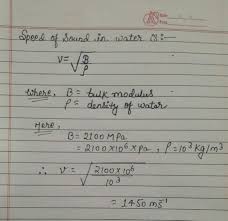 Speed of Sound in water is:-
V = √(B/ρ)
where, B = bulk modulus
ρ = density of water
Here,
B = 2100 MPa
= 2100 × 10⁶ × Pa, ρ = 10³ kg/m³
∴ V = √(2100 × 10⁶ / 10³)
= 1450 ms⁻¹